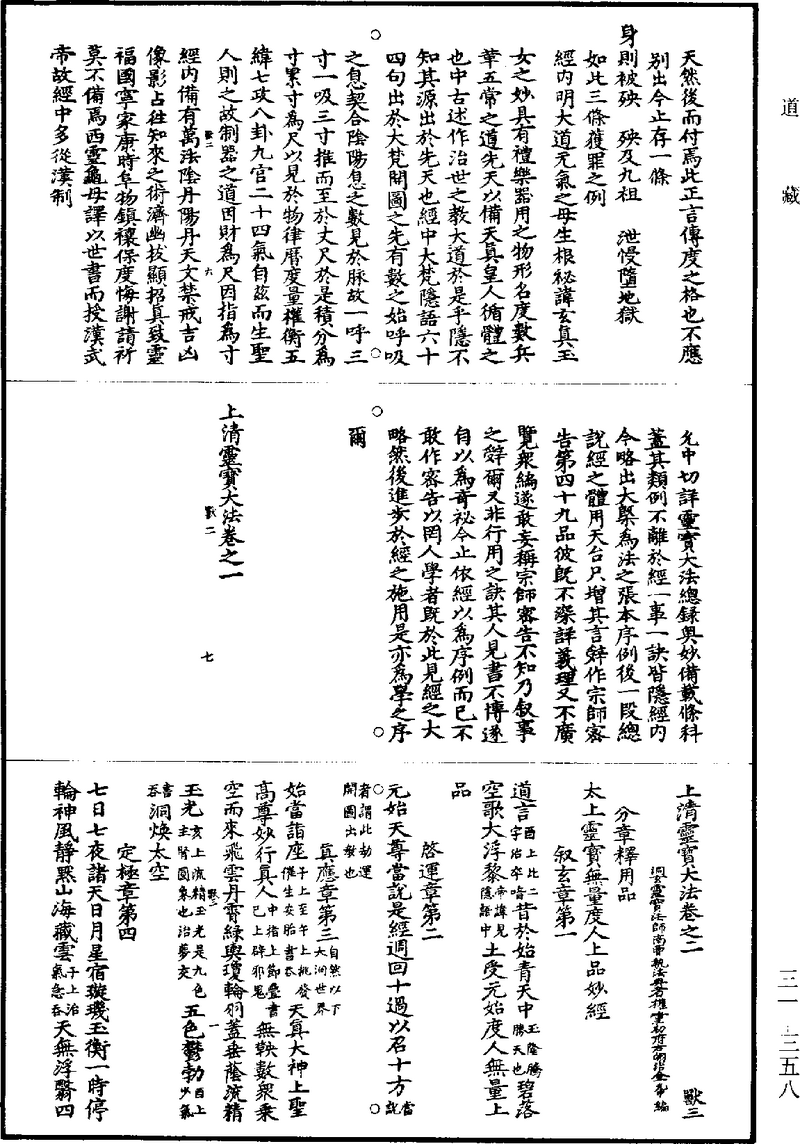 道藏
天然後而付焉此正言傳度之格也不應
別出今止存一條
身則被殃　殃及九祖　泄慢墮地獄
如此三條獲罪之例
經內明大道元氣之母生根祕諱玄真玉
女之妙具有禮樂器用之物形名度數兵
革五常之道先天以備天真皇人循體之
也中古述作治世之教大道於是乎隱不
知其源出於先天也經中大梵隱語六十
四句出於大梵開圖之先有數之始呼吸
之息契合陰陽息之數見於脉故一呼三
寸一吸三寸推而至於丈尺於是積分為
寸累寸為尺以見於物律曆度量權衡五
緯七政八卦九宮二十四氣自茲而生聖
人則之故制器之道因財為尺因指為寸
經內備有萬法陰丹陽丹天文禁戒吉凶
像影占往知來之術濟幽拔顯招真致靈
福國寧家康時阜物鎮禳保度悔謝請祈
莫不備焉西靈龜母譯以世書而授漢武
帝故經中多從漢制
獸二
六
允中切詳靈寶大法總錄與妙備載條科
蓋其類例不離於經一事一訣皆隱經內
今略出大槩為法之張本序例後一段總
說經之體用天台只增其言辭作宗師密
告第四十九品彼既不深詳義理又不廣
覽衆編遂敢妄稱宗師密告不知乃叙事
之辭爾又非行用之訣其人見書不博遂
自以為奇祕今止依經以為序例而已不
敢作密告以罔人學者既於此見經之大
略然後進步於經之施用是亦為學之序
爾
上清靈寶大法卷之一
獸二
七
上清靈寶大法卷之二
獸三
分章釋用品
太上靈寶無量度人上品妙經
叙玄章第一
道言酉上比二字治卒喑昔於始青天中玉隆騰勝天也碧落
空歌大浮黎帝諱見隱語中土受元始度人無量上
品
啓運章第二
元始天尊當說是經週回十過以召十方當說
者謂此劫運開圖出教也
真應章第三自然以下大洞世界
始當詣座子上至午上批發催生安胎書吞天真大神上聖
高尊妙行真人中指上節疊書已上辟邪鬼無鞅數衆乘
空而來飛雲丹霄綠輿瓊輪羽蓋垂蔭流精
玉光亥上流精玉光是九色主腎圓象也治夢交五色鬱勃酉上少氣
書吞洞煥太空
定極章第四
七日七夜諸天日月星宿璇璣玉衡一時停
輪神風靜默山海藏雲子上治氣急吞天無浮翳四
三一－三五八